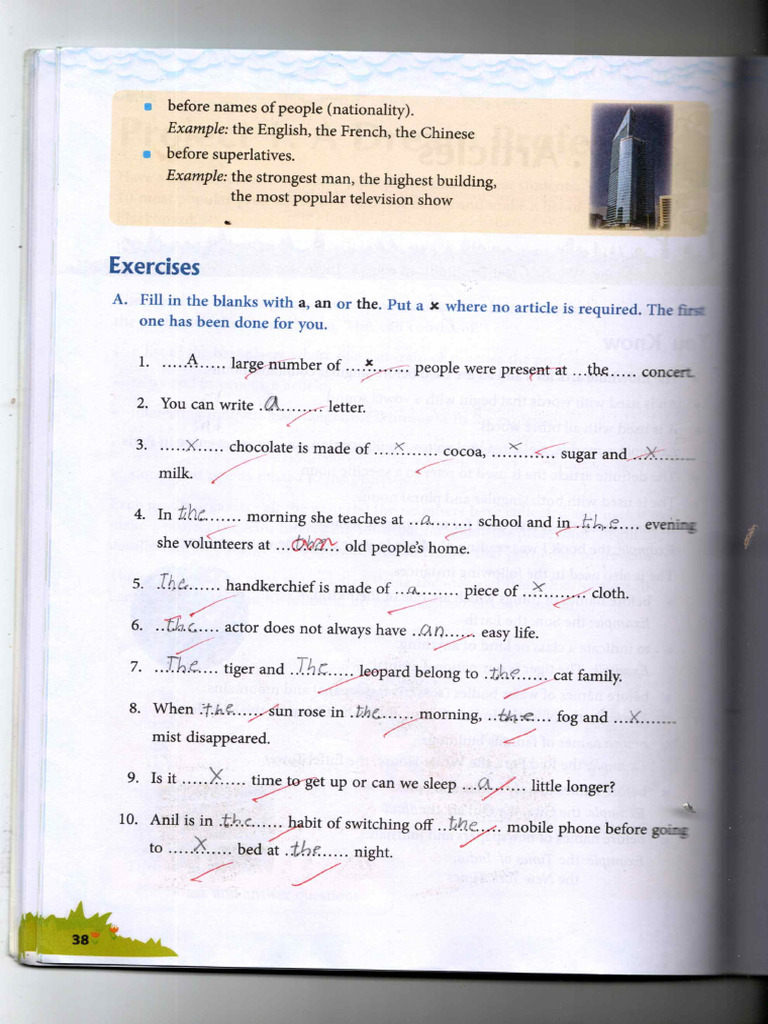 before names of people (nationality).
Example: the English, the French, the Chinese
before superlatives.
Example: the strongest man, the highest building,
the most popular television show
Exercises
A. Fill in the blanks with a, an or the. Put a × where no article is required. The first
one has been done for you.
1. .....A...... large number of ....×.......... people were present at ...the..... concert.
2. You can write ..a.......... letter.
3. .....×...... chocolate is made of ....×........ cocoa, ....×........ sugar and ...×........
milk.
4. In the........ morning she teaches at ..a........ school and in .the..... evening
she volunteers at ............ old people's home.
5. The....... handkerchief is made of ..a......... piece of ..×.......... cloth.
6. ..the..... actor does not always have ..an...... easy life.
7. ..The..... tiger and ..The...... leopard belong to .the....... cat family.
8. When .the....... sun rose in .the....... morning, ..the.... fog and ...×........
mist disappeared.
9. Is it .....×...... time to get up or can we sleep ...a....... little longer?
10. Anil is in .the....... habit of switching off ..the..... mobile phone before going
to .....×...... bed at .the...... night.
38